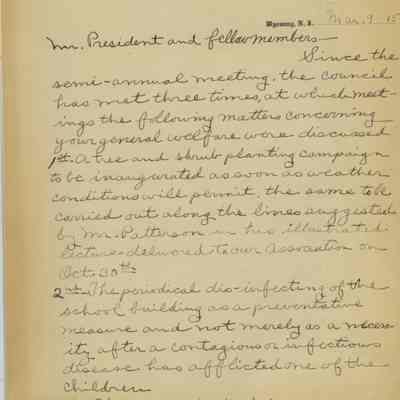 Wyoming, N. J. Mar. 9 - 15
Mr. President and fellow members—
Since the
semi-annual meeting, the council
has met three times, at which meet-
ings the following matters concerning
your general welfare were discussed
1st A tree and shrub planting campaign
to be inaugurated as soon as weather
conditions will permit, the same to be
carried out along the lines suggested
by Mr. Patterson in his illustrated
lecture delivered to our Association on
Oct. 30th
2nd The periodical dis-infecting of the
school building as a preventative
measure and not merely as a necess
ity after a contagious or infectious
disease has afflicted one of the
children